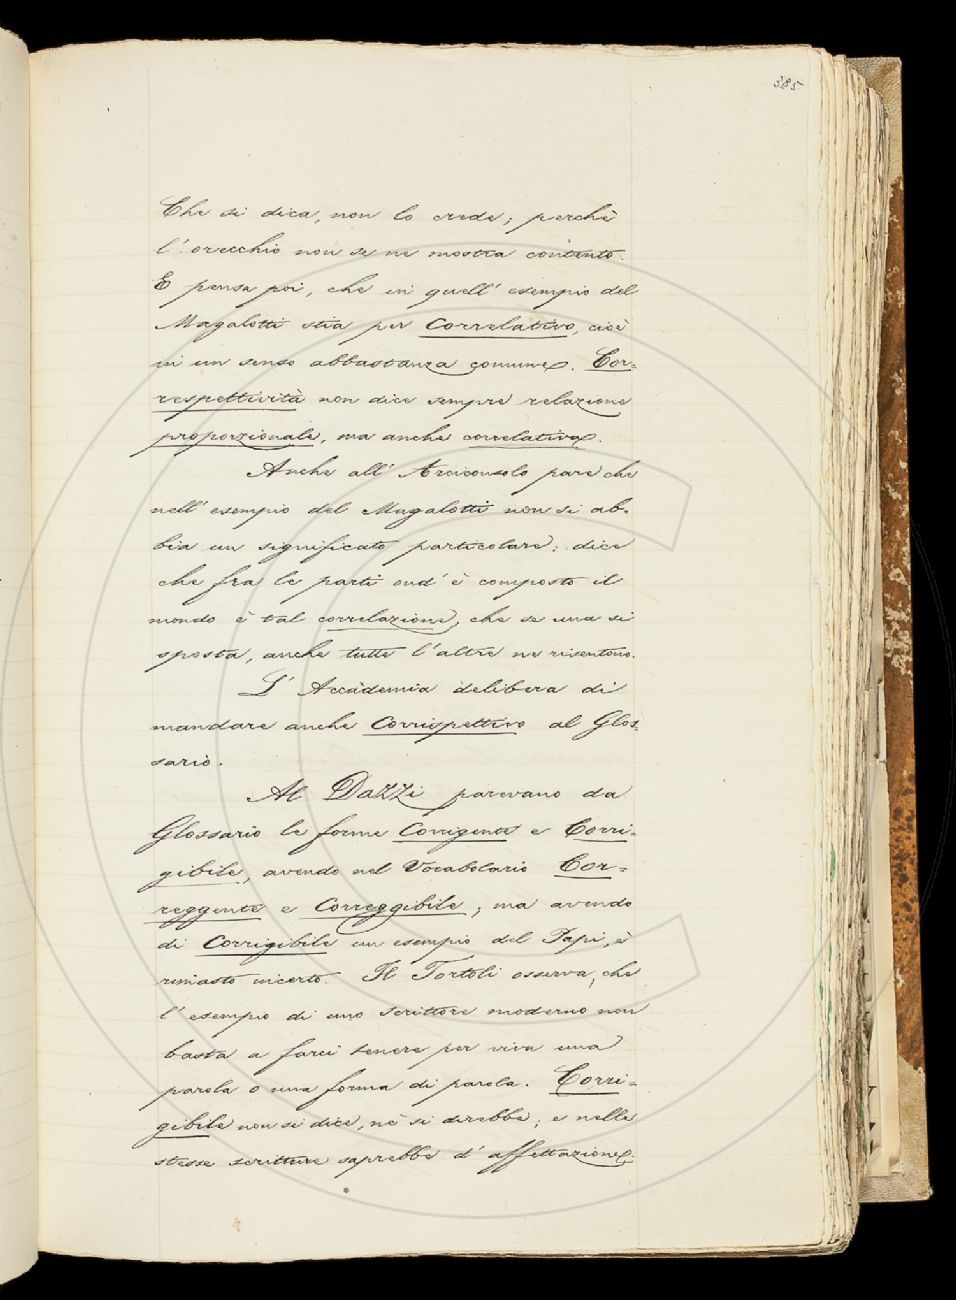 385
Che si dica, non lo crede; perchè
l'orecchio non se ne mostra contento.
E pensa poi, che in quell'esempio del
Magalotti stia per Correlativo, cioè
in un senso abbastanza comune. Cor=
respettività non dice sempre relazione
proporzionale, ma anche correlativa.
Anche all'Arciconsolo pare che
nell'esempio del Magalotti non si ab=
bia un significato particolare: dice
che fra le parti ond'è composto il
mondo è tal correlazione, che se una si
sposta, anche tutte l'altre ne risentono.
L'Accademia delibera di
mandare anche Corrispettivo al Glos=
sario.
Al Dazzi parevano da
Glossario le forme Corrigente e Corri=
gibile, avendo nel Vocabolario Cor=
reggente e Correggibile; ma avendo
di Corrigibile un esempio del Papi, è
rimasto incerto. Il Tortoli osserva, che
l'esempio di uno scrittore moderno non
basta a farci tenere per viva una
parola o una forma di parola. Corri=
gibile non si dice, nè si direbbe; e nelle
stesse scritture saprebbe d'affettazione.